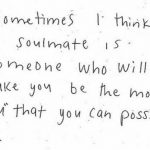 ometimes I think
soulmate is
omeone who will
ake you be the mo
" that you can poss